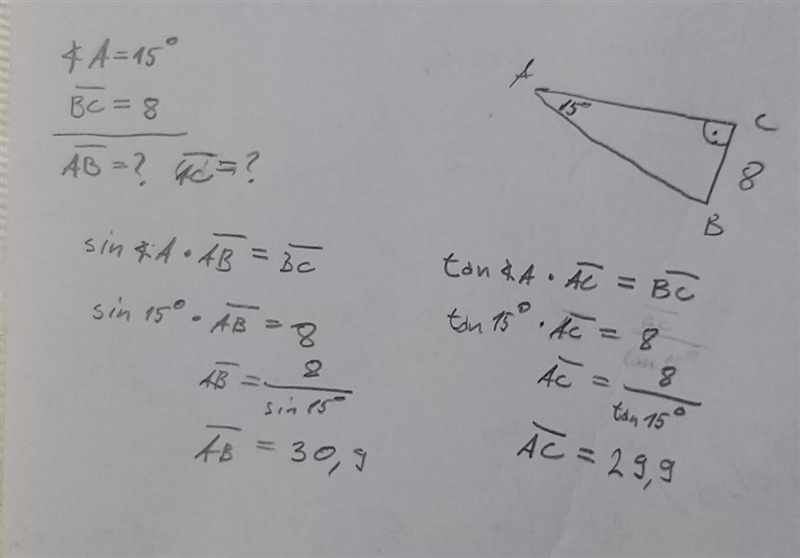 ∢A=15°
BC = 8
AB=? AC=?
A
15°
C
8
B
sin∢A·AB=BC
sin15°·AB=8
AB=8/sin15°
AB=30,9
tan∢A·AC=BC
tan15°·AC=8
AC=8/tan15°
AC=29,9